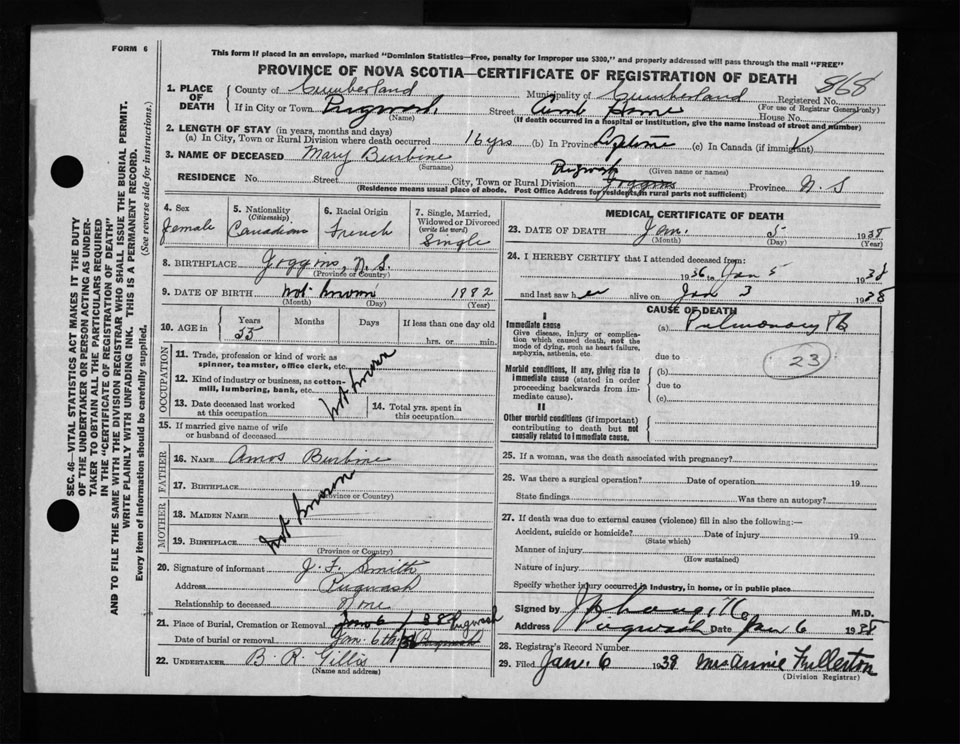 FORM 6
This form if placed in an envelope, marked "Dominion Statistics—Free, penalty for improper use $300," and properly addressed will pass through the mail "FREE"
PROVINCE OF NOVA SCOTIA—CERTIFICATE OF REGISTRATION OF DEATH
868
1. PLACE OF DEATH
County of Cumberland Municipality of Cumberland Registered No.
(For use of Registrar General only)
If in City or Town Pugwash Street Cumb Home House No.
(Name) (If death occurred in a hospital or institution, give the name instead of street and number)
2. LENGTH OF STAY (in years, months and days)
(a) In City, Town or Rural Division where death occurred 16 yrs (b) In Province Lifetime (c) In Canada (if immigrant)
3. NAME OF DECEASED Mary Burbine
(Surname) (Given name or names)
Pugwash
RESIDENCE No. Street City, Town or Rural Division Joggins Province N.S
(Residence means usual place of abode. Post Office Address for residents in rural parts not sufficient)
SEC. 46—VITAL STATISTICS ACT MAKES IT THE DUTY
OF THE UNDERTAKER OR PERSON ACTING AS UNDER-
TAKER TO OBTAIN ALL THE PARTICULARS REQUIRED
IN THE "CERTIFICATE OF REGISTRATION OF DEATH"
AND TO FILE THE SAME WITH THE DIVISION REGISTRAR WHO SHALL ISSUE THE BURIAL PERMIT.
WRITE PLAINLY WITH UNFADING INK. THIS IS A PERMANENT RECORD.
Every item of information should be carefully supplied. (See reverse side for instructions.)
4. Sex
Female
5. Nationality
(Citizenship)
Canadian
6. Racial Origin
French
7. Single, Married,
Widowed or Divorced
(write the word)
Single
8. BIRTHPLACE Joggins, N.S.
(Province or Country)
9. DATE OF BIRTH not known 1882
(Month) (Day) (Year)
10. AGE in
Years Months Days If less than one day old
55 hrs. or min.
OCCUPATION
11. Trade, profession or kind of work as
spinner, teamster, office clerk, etc.
12. Kind of industry or business, as cotton-
mill, lumbering, bank, etc.
not known
13. Date deceased last worked
at this occupation
14. Total yrs. spent in
this occupation
15. If married give name of wife
or husband of deceased
FATHER
16. NAME Amos Burbine
17. BIRTHPLACE
(Province or Country)
MOTHER
18. MAIDEN NAME
not known
19. BIRTHPLACE
(Province or Country)
20. Signature of informant J. F. Smith
Address Pugwash
Relationship to deceased None
21. Place of Burial, Cremation or Removal Pugwash
Date of burial or removal Jan. 6th/38 Pugwash
22. UNDERTAKER B. R. Gillis
(Name and address)
MEDICAL CERTIFICATE OF DEATH
23. DATE OF DEATH Jan. 5 1938
(Month) (Day) (Year)
24. I HEREBY CERTIFY that I attended deceased from:
1936 to Jan 5 1938
and last saw her alive on Jan 3 1938
CAUSE OF DEATH
I
Immediate cause
Give disease, injury or complica-
tion which caused death, not the
mode of dying, such as heart failure,
asphyxia, asthenia, etc.
(a) Pulmonary Tb
due to
23
Morbid conditions, if any, giving rise to
immediate cause (stated in order
proceeding backwards from im-
mediate cause).
(b)
due to
(c)
II
Other morbid conditions (if important)
contributing to death but not
causally related to immediate cause.
25. If a woman, was the death associated with pregnancy?
26. Was there a surgical operation? Date of operation 19
State findings Was there an autopsy?
27. If death was due to external causes (violence) fill in also the following:—
Accident, suicide or homicide? Date of injury 19
(State which)
Manner of injury
(How sustained)
Nature of injury
Specify whether injury occurred in industry, in home, or in public place
Signed by M.D.
Address Pugwash Date Jan 6 1938
28. Registrar's Record Number
29. Filed Jan. 6 1938 Mrs Annie Fullerton
(Division Registrar)